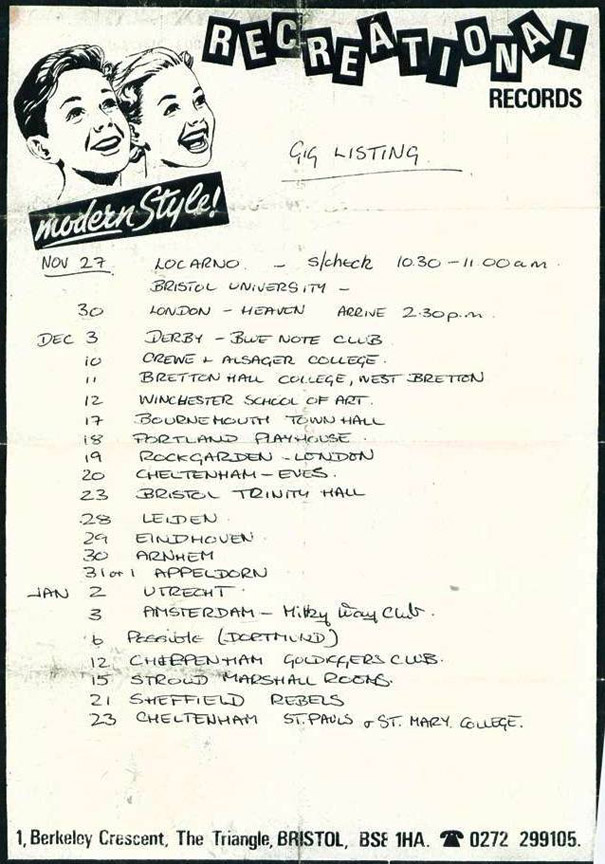 RECREATIONAL
RECORDS
GIG LISTING
modern Style!
NOV 27 LOCARNO - s/check 10.30 - 11.00am.
BRISTOL UNIVERSITY -
30 LONDON - HEAVEN ARRIVE 2.30p.m.
DEC 3 DERBY - BLUE NOTE CLUB
10 CREWE + ALSAGER COLLEGE.
11 BRETTON HALL COLLEGE, WEST BRETTON
12 WINCHESTER SCHOOL OF ART.
17 BOURNEMOUTH TOWN HALL
18 PORTLAND PLAYHOUSE.
19 ROCKGARDEN - LONDON
20 CHELTENHAM - EVES.
23 BRISTOL TRINITY HALL
28 LEIDEN
29 EINDHOVEN
30 ARNHEM
31 or 1 APPELDORN
JAN 2 UTRECHT.
3 AMSTERDAM - Milky Way Club.
6 POSSIBLE (DORTMUND)
12 CHIPPENHAM GOLDIGGERS CLUB.
15 STROUD MARSHALL ROOMS.
21 SHEFFIELD REBELS
23 CHELTENHAM ST. PAULS & ST. MARY. COLLEGE.
1, Berkeley Crescent, The Triangle, BRISTOL, BS8 1HA. ☎ 0272 299105.